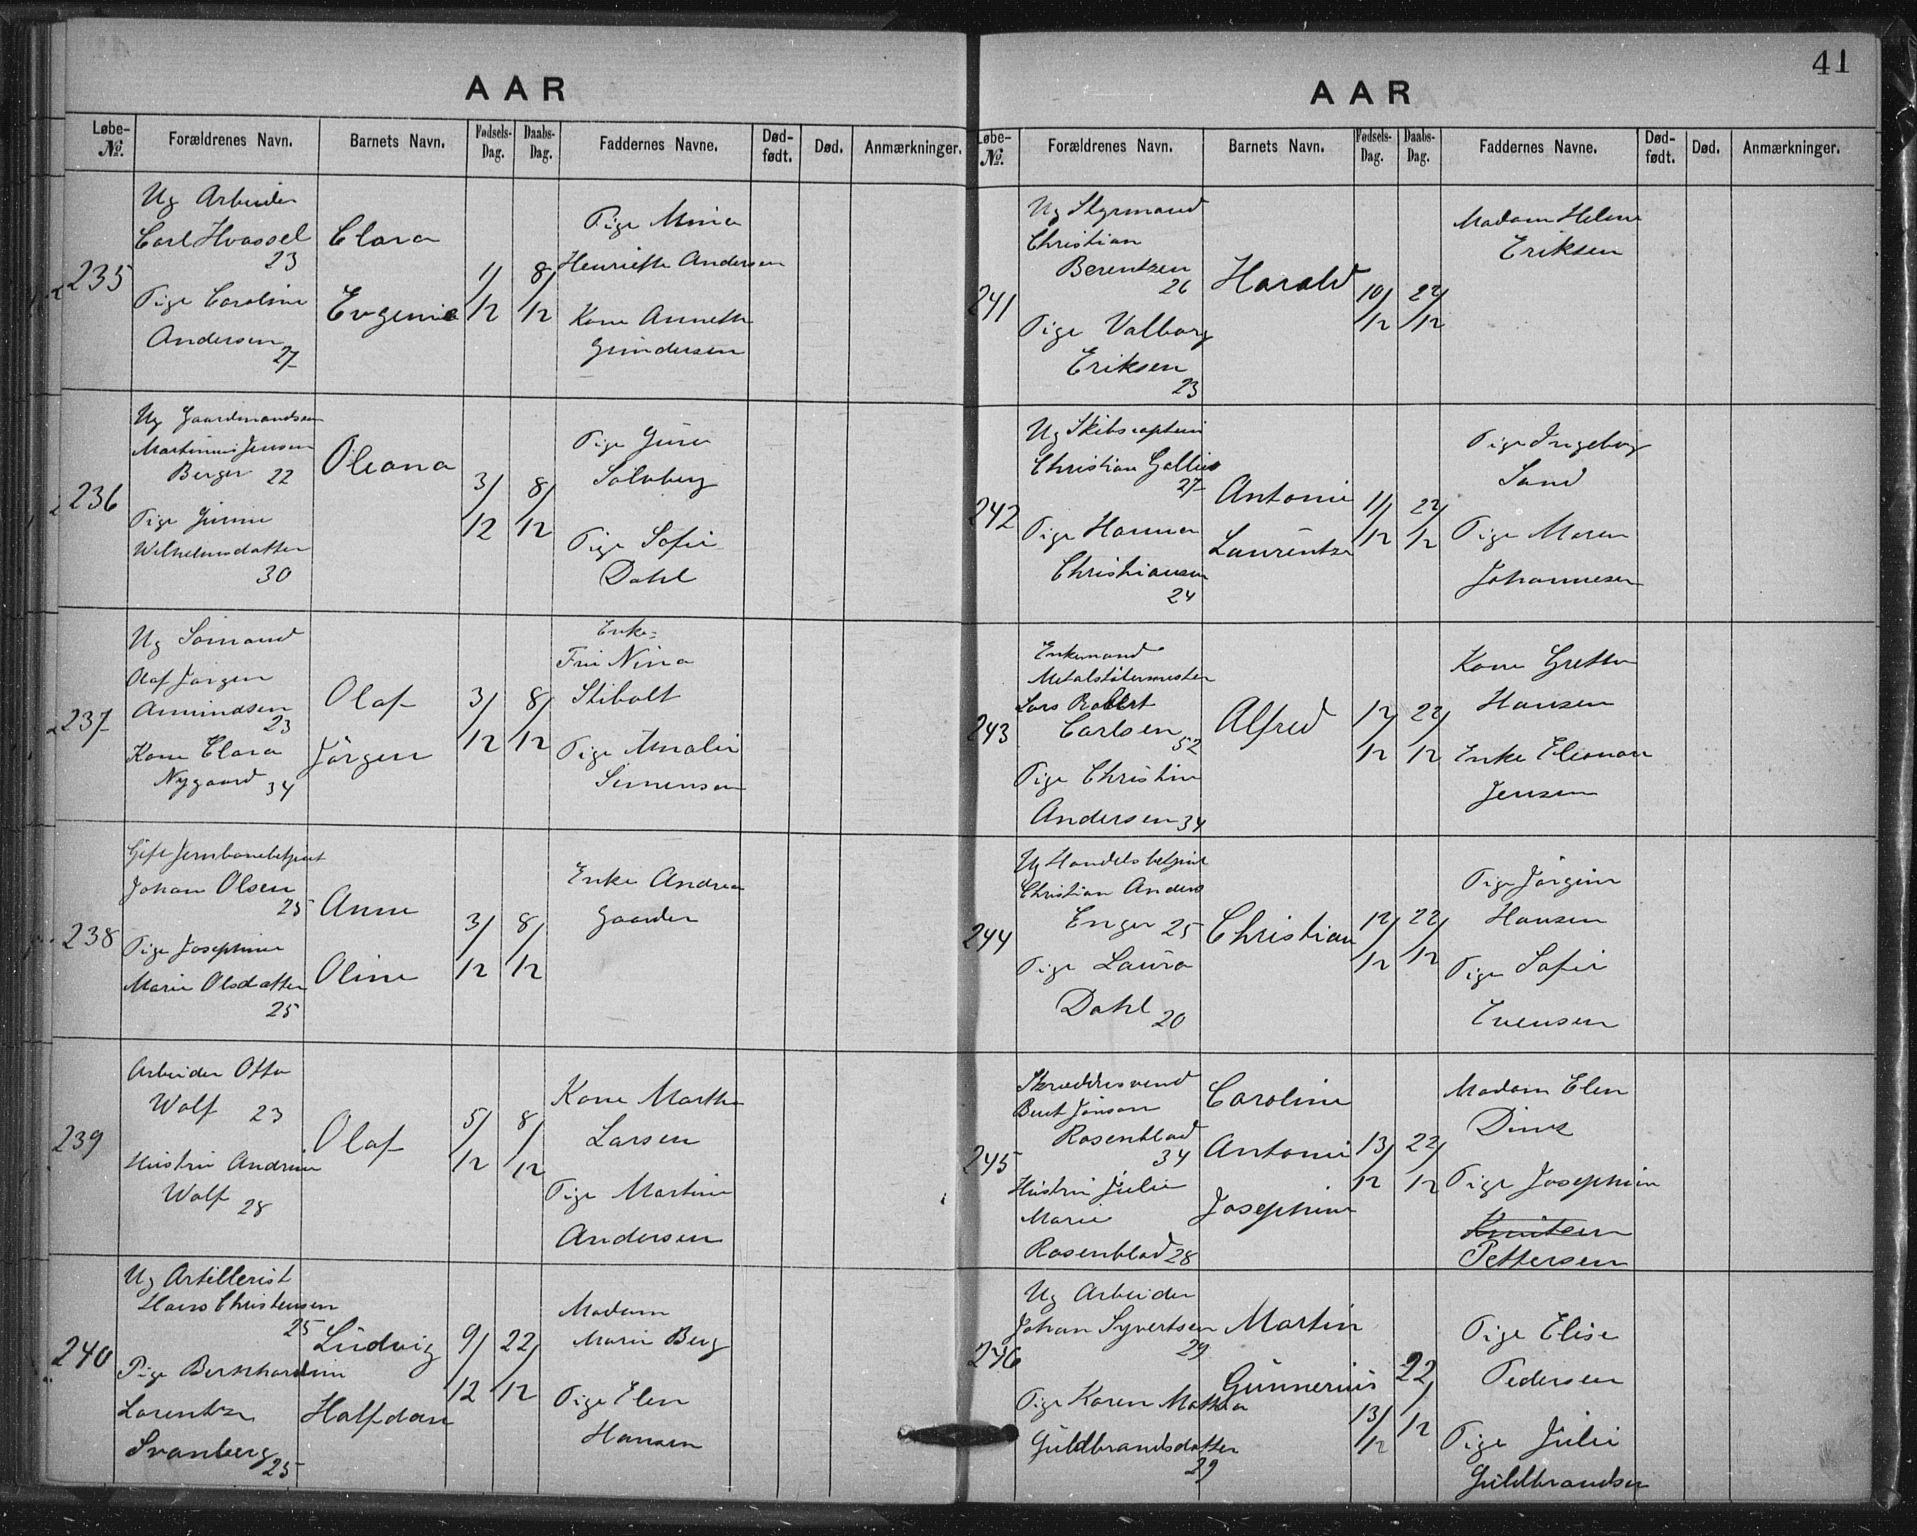 AAR
Løbe-No. Forældrenes Navn. Barnets Navn. Fødsels-Dag. Daabs-Dag. Faddernes Navne. Død-født. Død. Anmærkninger.
235
Ug Arbeider
Carl Hvassel
23
Pige Caroline
Andersen
27
Clara
Evgenie
1/12
8/12
Pige Mina
Henriette Andersen
Kone Annette
Gundersen
236
Ug Gaardmandssøn
Martinius Jensen
Berger 22
Pige
Wilhelmsdatter
30
Oleana
3/12
8/12
Pige
Solvberg
Pige Sofie
Dahl
237
Ug Sømand
Olaf Jørgen
Amundsen
23
Kone Clara
Nygaard 34
Olaf
Jørgen
3/12
8/12
Enke-
Fru Nina
Stibolt
Pige Amalie
Simensen
238
Gift Jernbanebetjent
Johan Olsen
25
Pige Josephine
Marie Olsdatter
25
Anne
Oline
3/12
8/12
Enke Andrea
Gaarder
239
Arbeider Otto
Wolf 23
Hustru Andrine
Wolf 28
Olaf
5/12
8/12
Kone Marthe
Larsen
Pige Martine
Andersen
240
Ug Artillerist
Hans Christensen
25
Pige Bernhardine
Lorentze
Svanberg 25
Ludvig
Halfdan
9/12
22/12
Madam
Marie Berg
Pige Elen
Hansen
41
AAR
Løbe-No. Forældrenes Navn. Barnets Navn. Fødsels-Dag. Daabs-Dag. Faddernes Navne. Død-født. Død. Anmærkninger.
241
Ug Styrmand
Christian
Berentzen
26
Pige Valborg
Eriksen
23
Harald
10/12
22/12
Madam Helene
Eriksen
242
Ug Skibscaptein
Christian Gallius
27
Pige Hanna
Christiansen
24
Antonie
Laurentze
11/12
22/12
Pige Ingeborg
Sand
Pige Maren
Johannesen
243
Enkemand
Metalstøbermester
Lars Robert
Carlsen 52
Pige Christine
Andersen 34
Alfred
12/12
22/12
Kone Grethe
Hansen
Enke Eleonore
Jensen
244
Ug Handelsbetjent
Christian Anders
Enger 25
Pige Laura
Dahl 20
Christian
12/12
22/12
Pige Jørgine
Hansen
Pige Sofie
Evensen
245
Skræddersvend
Bent Jonson
Rosenblad
34
Hustru Julie
Marie
Rosenblad 28
Caroline
Antonie
Josephine
13/12
22/12
Madam Elen
Pige Josephine
Knutsen
Pettersen
246
Ug Arbeider
Johan Syvertsen
29
Pige Karen Mathea
Guldbrandsdatter
29
Martin
Gunnerius
13/12
22/12
Pige Elise
Pedersen
Pige Julie
Guldbrandsen